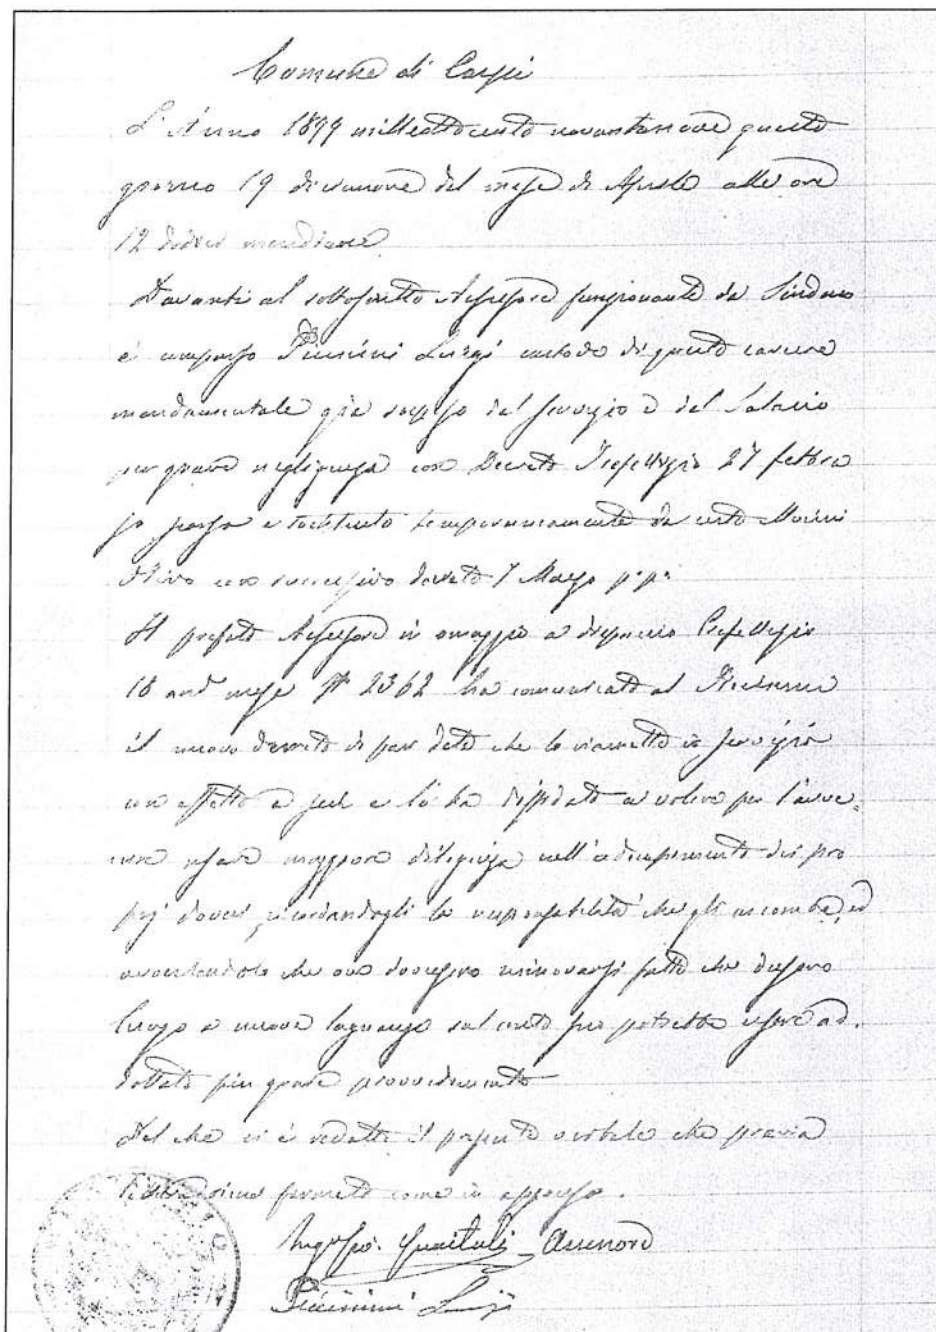 Comune di Carpi
L'Anno 1899 milleottocento novantanove questo
giorno 19 dicianove del mese di Aprile alle ore
12 dodici meridiane
Davanti al sottoscritto Assessore funzionante da Sindaco
è comparso Piccinini Luigi custode di questo carcere
mandamentale già sospeso dal servizio e dal Salario
per grave negligenza con Decreto Prefettizio 27 febbra
jo scorso e sostituito temporaneamente da certo Morini
con successivo decreto 7 Marzo p.p.
Il prefato Assessore in omaggio a dispaccio Prefettizio
18 and. mese N° 2362 ha comunicato al Piccinini
il nuovo decreto di pari data che lo riammette in servizio
con effetto a e lo ha diffidato a volere per l'avve-
nire usare maggiore diligenza nell'adempimento dei pro
prj doveri, ricordandogli la responsabilità che gli incombe, ed
avvertendolo che ove dovessero rinnovarsi fatti che dassero
luogo a nuove lagnanze sul conto suo potrebbe essere ad.
dottato più grave provvedimento
Del che si è redatto il presente verbale che previa
conferma firmato come in appresso.
Guaitoli Assessore
Piccinini Luigi